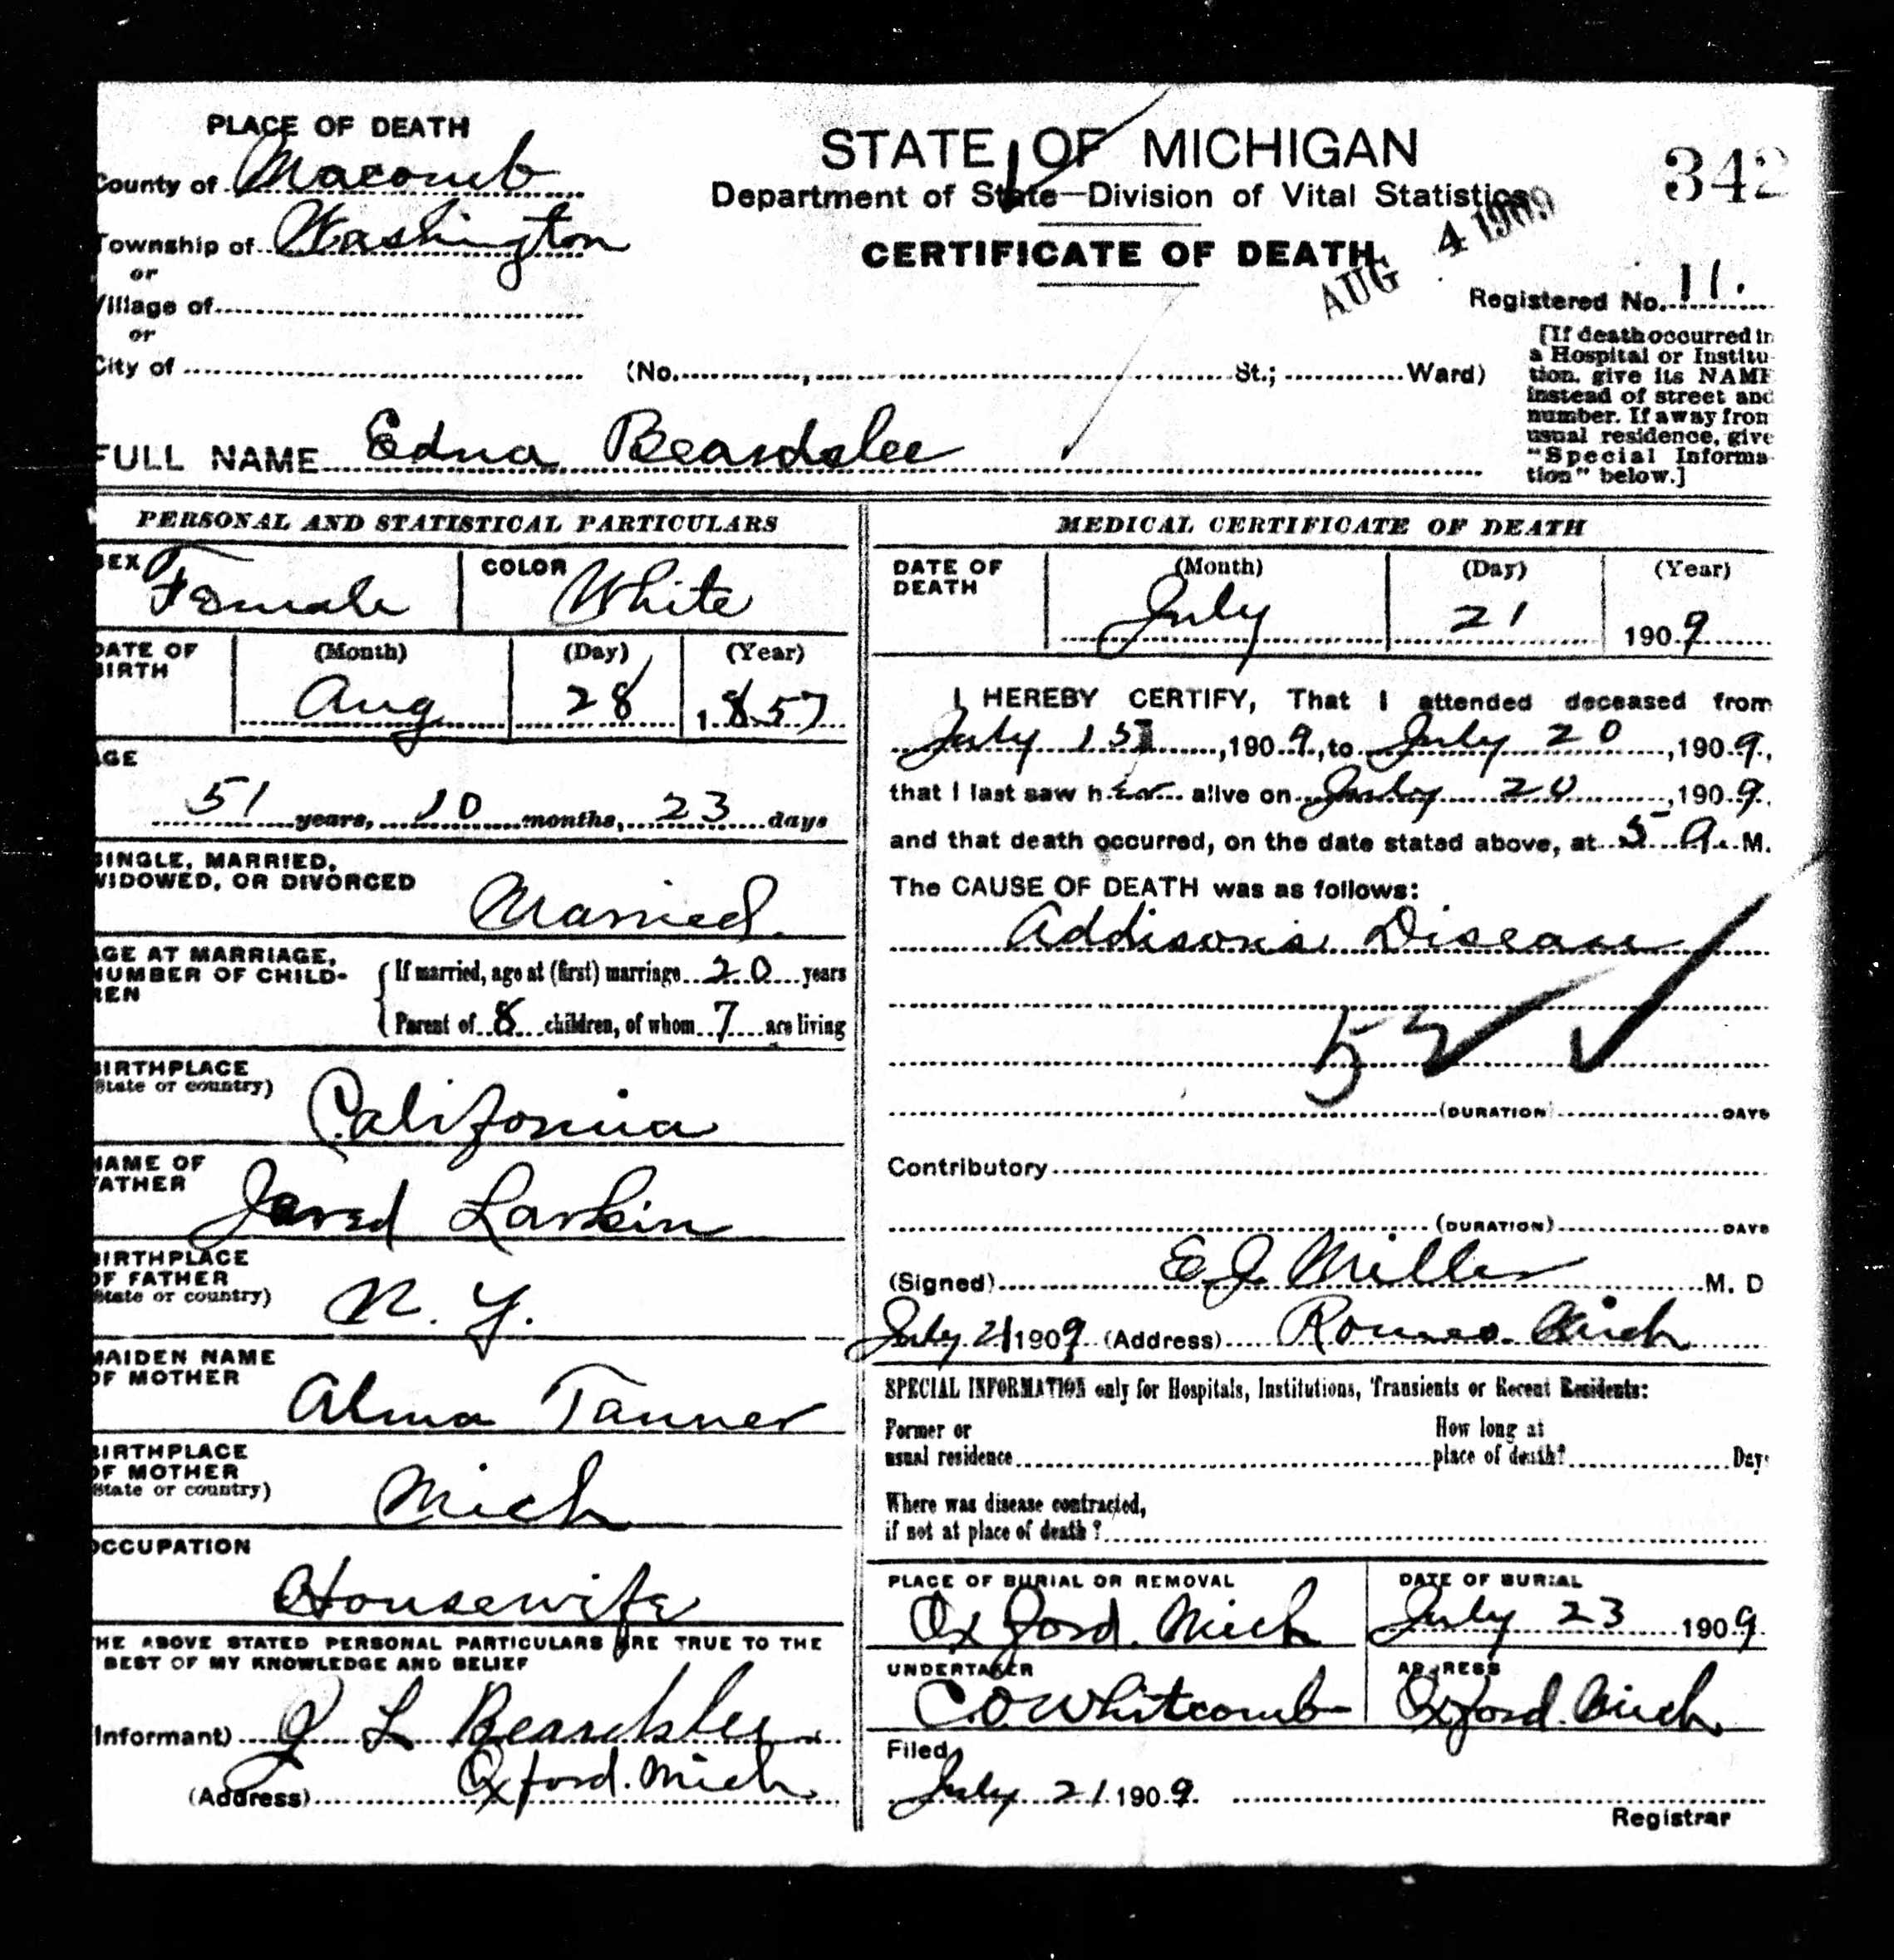 PLACE OF DEATH
County of Macomb
Township of Washington
or
Village of
or
City of
STATE OF MICHIGAN
Department of State—Division of Vital Statistics
CERTIFICATE OF DEATH
AUG 4 1909
342
Registered No. 11.
(No. , St.; Ward)
[If death occurred in
a Hospital or Institu-
tion, give its NAME
instead of street and
number. If away from
usual residence, give
"Special Informa-
tion" below.]
FULL NAME Edna Beardslee
PERSONAL AND STATISTICAL PARTICULARS
SEX Female
COLOR White
DATE OF BIRTH
(Month) (Day) (Year)
Aug 28 1857
AGE
51 years, 10 months, 23 days
SINGLE, MARRIED,
WIDOWED, OR DIVORCED
Married
AGE AT MARRIAGE,
NUMBER OF CHILD-
REN
If married, age at (first) marriage 20 years
Parent of 8 children, of whom 7 are living
BIRTHPLACE
(State or country)
California
NAME OF
FATHER
Jared Larkin
BIRTHPLACE
OF FATHER
(State or country)
N. Y.
MAIDEN NAME
OF MOTHER
Alma Tanner
BIRTHPLACE
OF MOTHER
(State or country)
Mich
OCCUPATION
Housewife
THE ABOVE STATED PERSONAL PARTICULARS ARE TRUE TO THE
BEST OF MY KNOWLEDGE AND BELIEF
(Informant) J L Beardslee
(Address) Oxford. Mich
MEDICAL CERTIFICATE OF DEATH
DATE OF
DEATH
(Month) (Day) (Year)
July 21 1909
I HEREBY CERTIFY, That I attended deceased from
July 15, 1909, to July 20, 1909,
that I last saw her alive on July 20, 1909,
and that death occurred, on the date stated above, at 5 a. M.
The CAUSE OF DEATH was as follows:
Addisons Disease
52
(DURATION) DAYS
Contributory
(DURATION) DAYS
(Signed) E J Miller M. D
July 21 1909 (Address) Romeo Mich
SPECIAL INFORMATION only for Hospitals, Institutions, Transients or Recent Residents:
Former or
usual residence
How long at
place of death? Days
Where was disease contracted,
if not at place of death?
PLACE OF BURIAL OR REMOVAL
Oxford. Mich
DATE OF BURIAL
July 23 1909
UNDERTAKER
C.O. Whitcomb
ADDRESS
Oxford. Mich
Filed
July 21 1909
Registrar